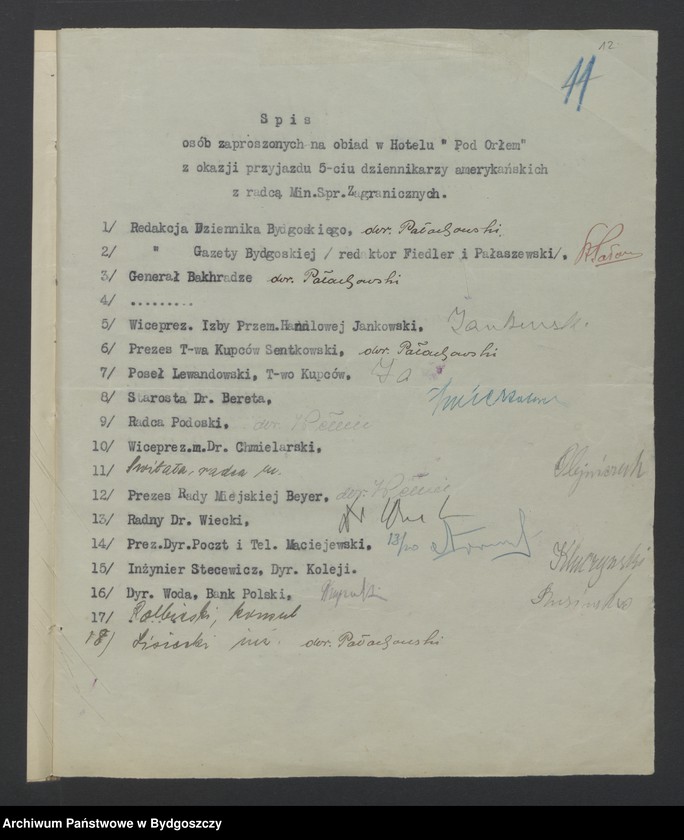 12
11
Spis
osób zaproszonych na obiad w Hotelu " Pod Orłem"
z okazji przyjazdu 5-ciu dziennikarzy amerykańskich
z radcą Min.Spr.Zagranicznych.
1/ Redakcja Dziennika Bydgoskiego, dor. Pałachowski
2/ " Gazety Bydgoskiej / redaktor Fiedler i Pałaszewski/.
3/ Generał Bakhradze dor. Pałachowski
4/ .........
5/ Wiceprez. Izby Przem.Handlowej Jankowski, Jankowsk.
6/ Prezes T-wa Kupców Sentkowski, dor. Pałachowski
7/ Poseł Lewandowski, T-wo Kupców. Ja
8/ Starosta Dr. Bereta,
9/ Radca Podoski, dor.
10/ Wiceprez.m.Dr. Chmielarski,
11/ Świtała, radca m.
12/ Prezes Rady Miejskiej Beyer, dor.
13/ Radny Dr. Wiecki,
14/ Prez.Dyr.Poczt i Tel. Maciejewski, 13/20
15/ Inżynier Stecewicz, Dyr. Koleji.
16/ Dyr. Woda, Bank Polski,
17/ konsul
18/ inż. dor. Pałachowski
Archiwum Państwowe w Bydgoszczy